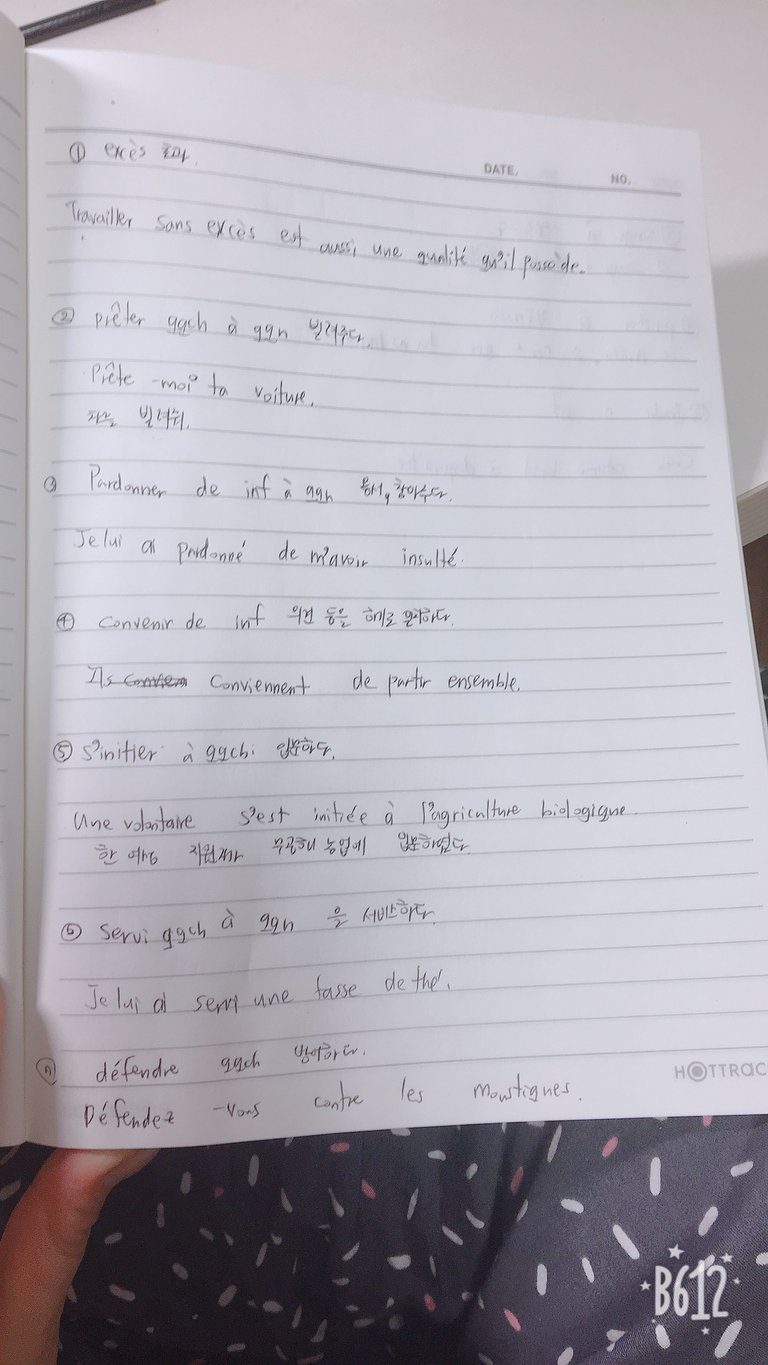 ① excès 초과.
DATE. NO.
Travailler sans excès est aussi une qualité qu'il possède.
② prêter qqch à qqn 빌려주다.
Prête-moi ta voiture.
차를 빌려줘.
③ Pardonner de inf à qqn 용서, 참아주다.
Je lui ai pardonné de m'avoir insulté.
④ convenir de inf 의견 등을 하기로 합의하다.
Ils conviennent de partir ensemble.
⑤ s'initier à qqch. 입문하다.
Une volontaire s'est initiée à l'agriculture biologique
한 여성 지원자가 무공해 농업에 입문하였다.
⑥ servi qqch à qqn 을 서비스하다.
Je lui ai servi une tasse de thé.
⑦ défendre qqch 방어하다.
HOTTRAC
Défendez-vous contre les moustiques.
B612